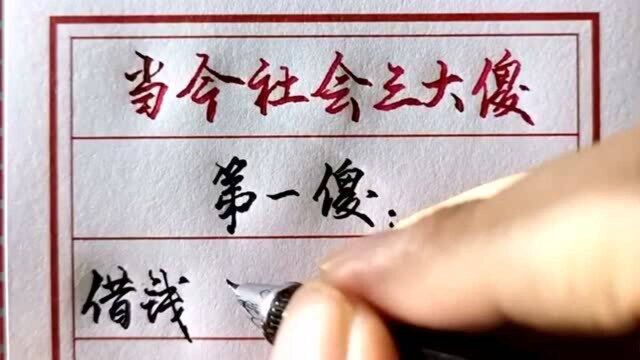 当今社会三大傻
第一傻:
借钱